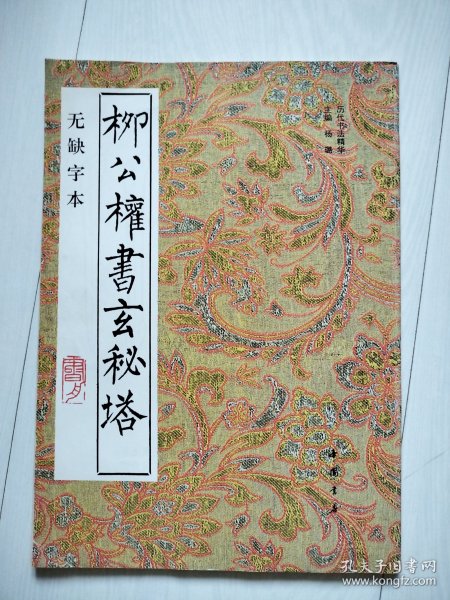 柳公權書玄秘塔
无缺字本
历代书法精华
主编 杨璐
中国书店
孔夫子旧书网
www.kongfz.com